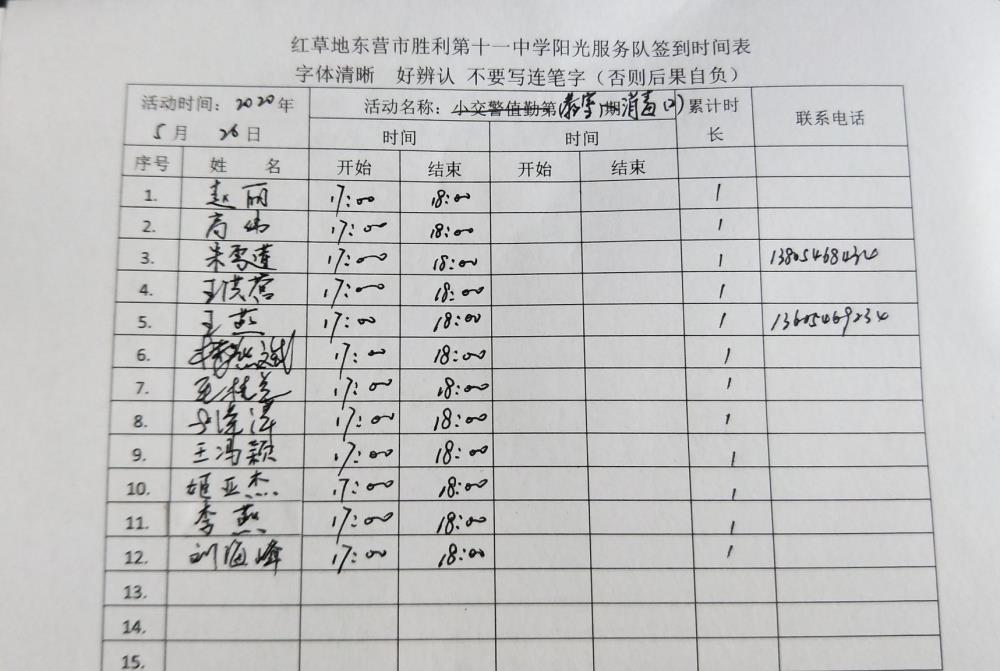 红草地东营市胜利第十一中学阳光服务队签到时间表
字体清晰 好辨认 不要写连笔字（否则后果自负）
活动时间：2020年 5月 26日 活动名称：小交警值勤第 教室 期 消毒 累计时长 联系电话
时间 时间
序号 姓 名 开始 结束 开始 结束
1. 赵丽 17:00 18:00 1
2. 高 17:00 18:00 1
3. 朱雪莲 17:00 18:00 1
4. 王洪营 17:00 18:00 1
5. 王燕 17:00 18:00 1
6. 17:00 18:00 1
7. 17:00 18:00 1
8. 17:00 18:00 1
9. 王冯颖 17:00 18:00 1
10. 姬亚杰 17:00 18:00 1
11. 李燕 17:00 18:00 1
12. 刘海峰 17:00 18:00 1
13.
14.
15.